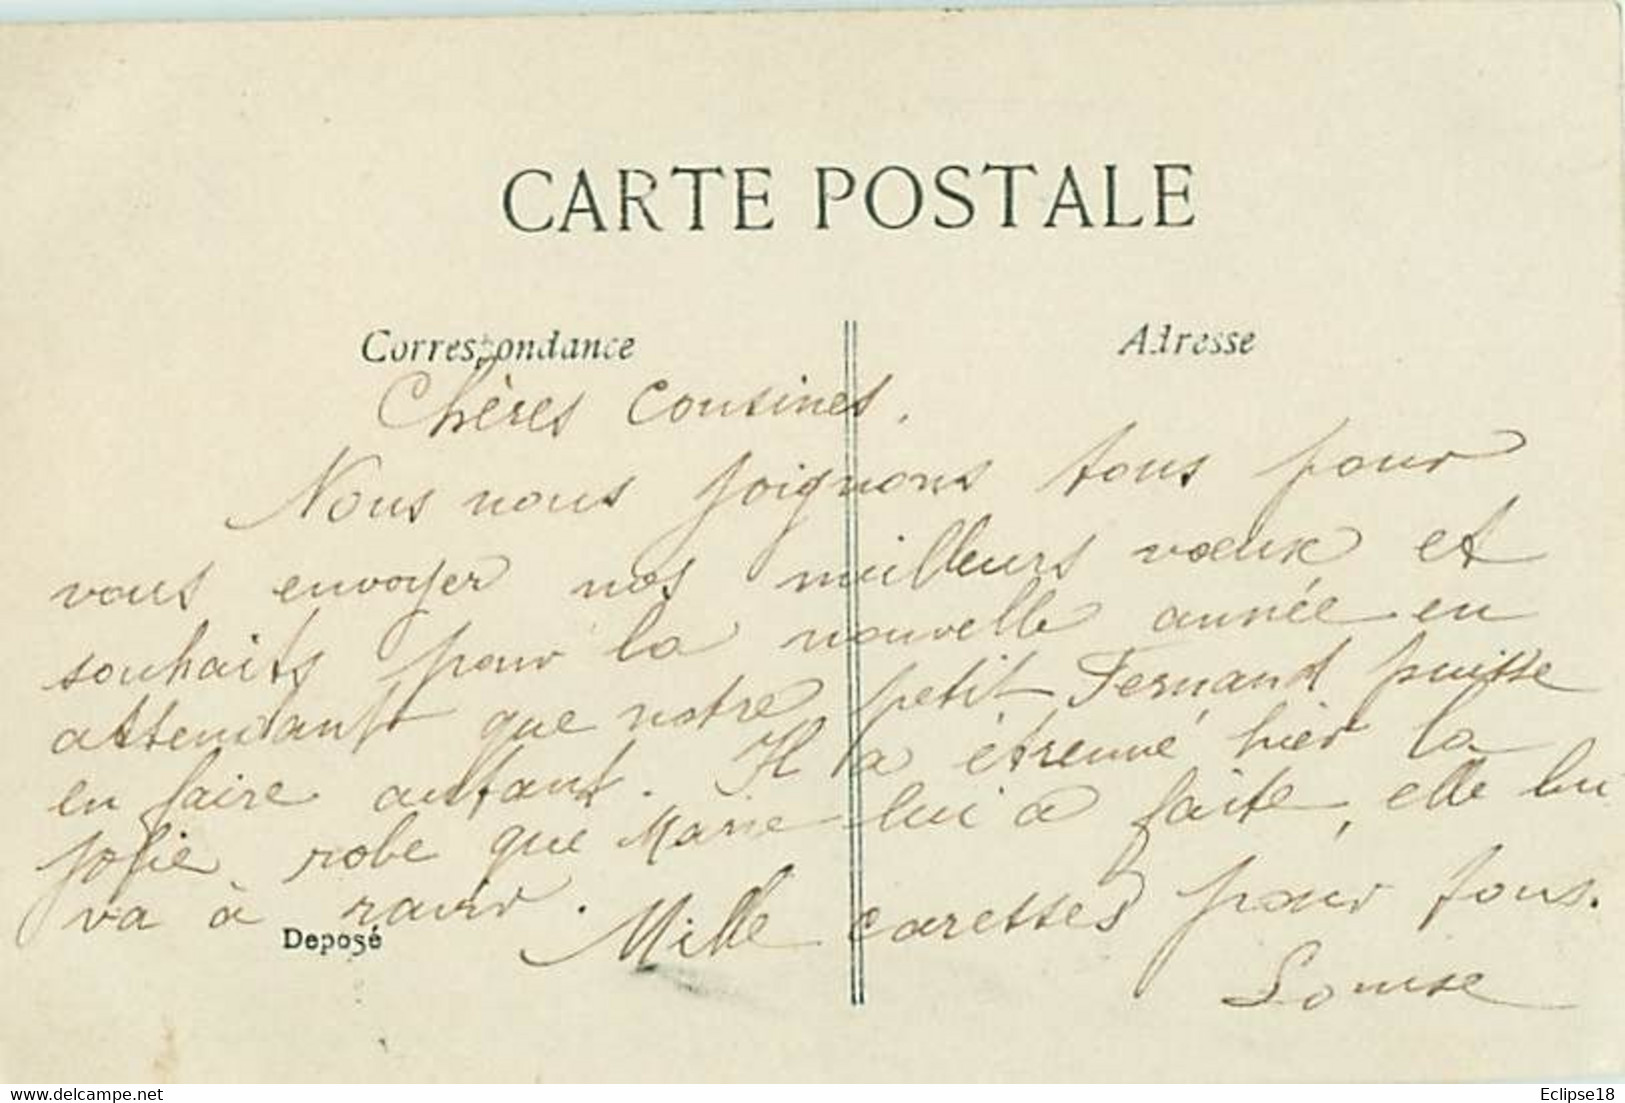 CARTE POSTALE
Correspondance
Adresse
Chères Cousines,
Nous nous joignons tous pour
vous envoyer nos meilleurs vœux et
souhaits pour la nouvelle année en
attendant que notre petit Fernand puisse
en faire autant. Il a étrenné hier la
jolie robe que Marie lui a faite, elle lui
va à ravir. Mille caresses pour tous.
Deposé
Louise
Eclipse18